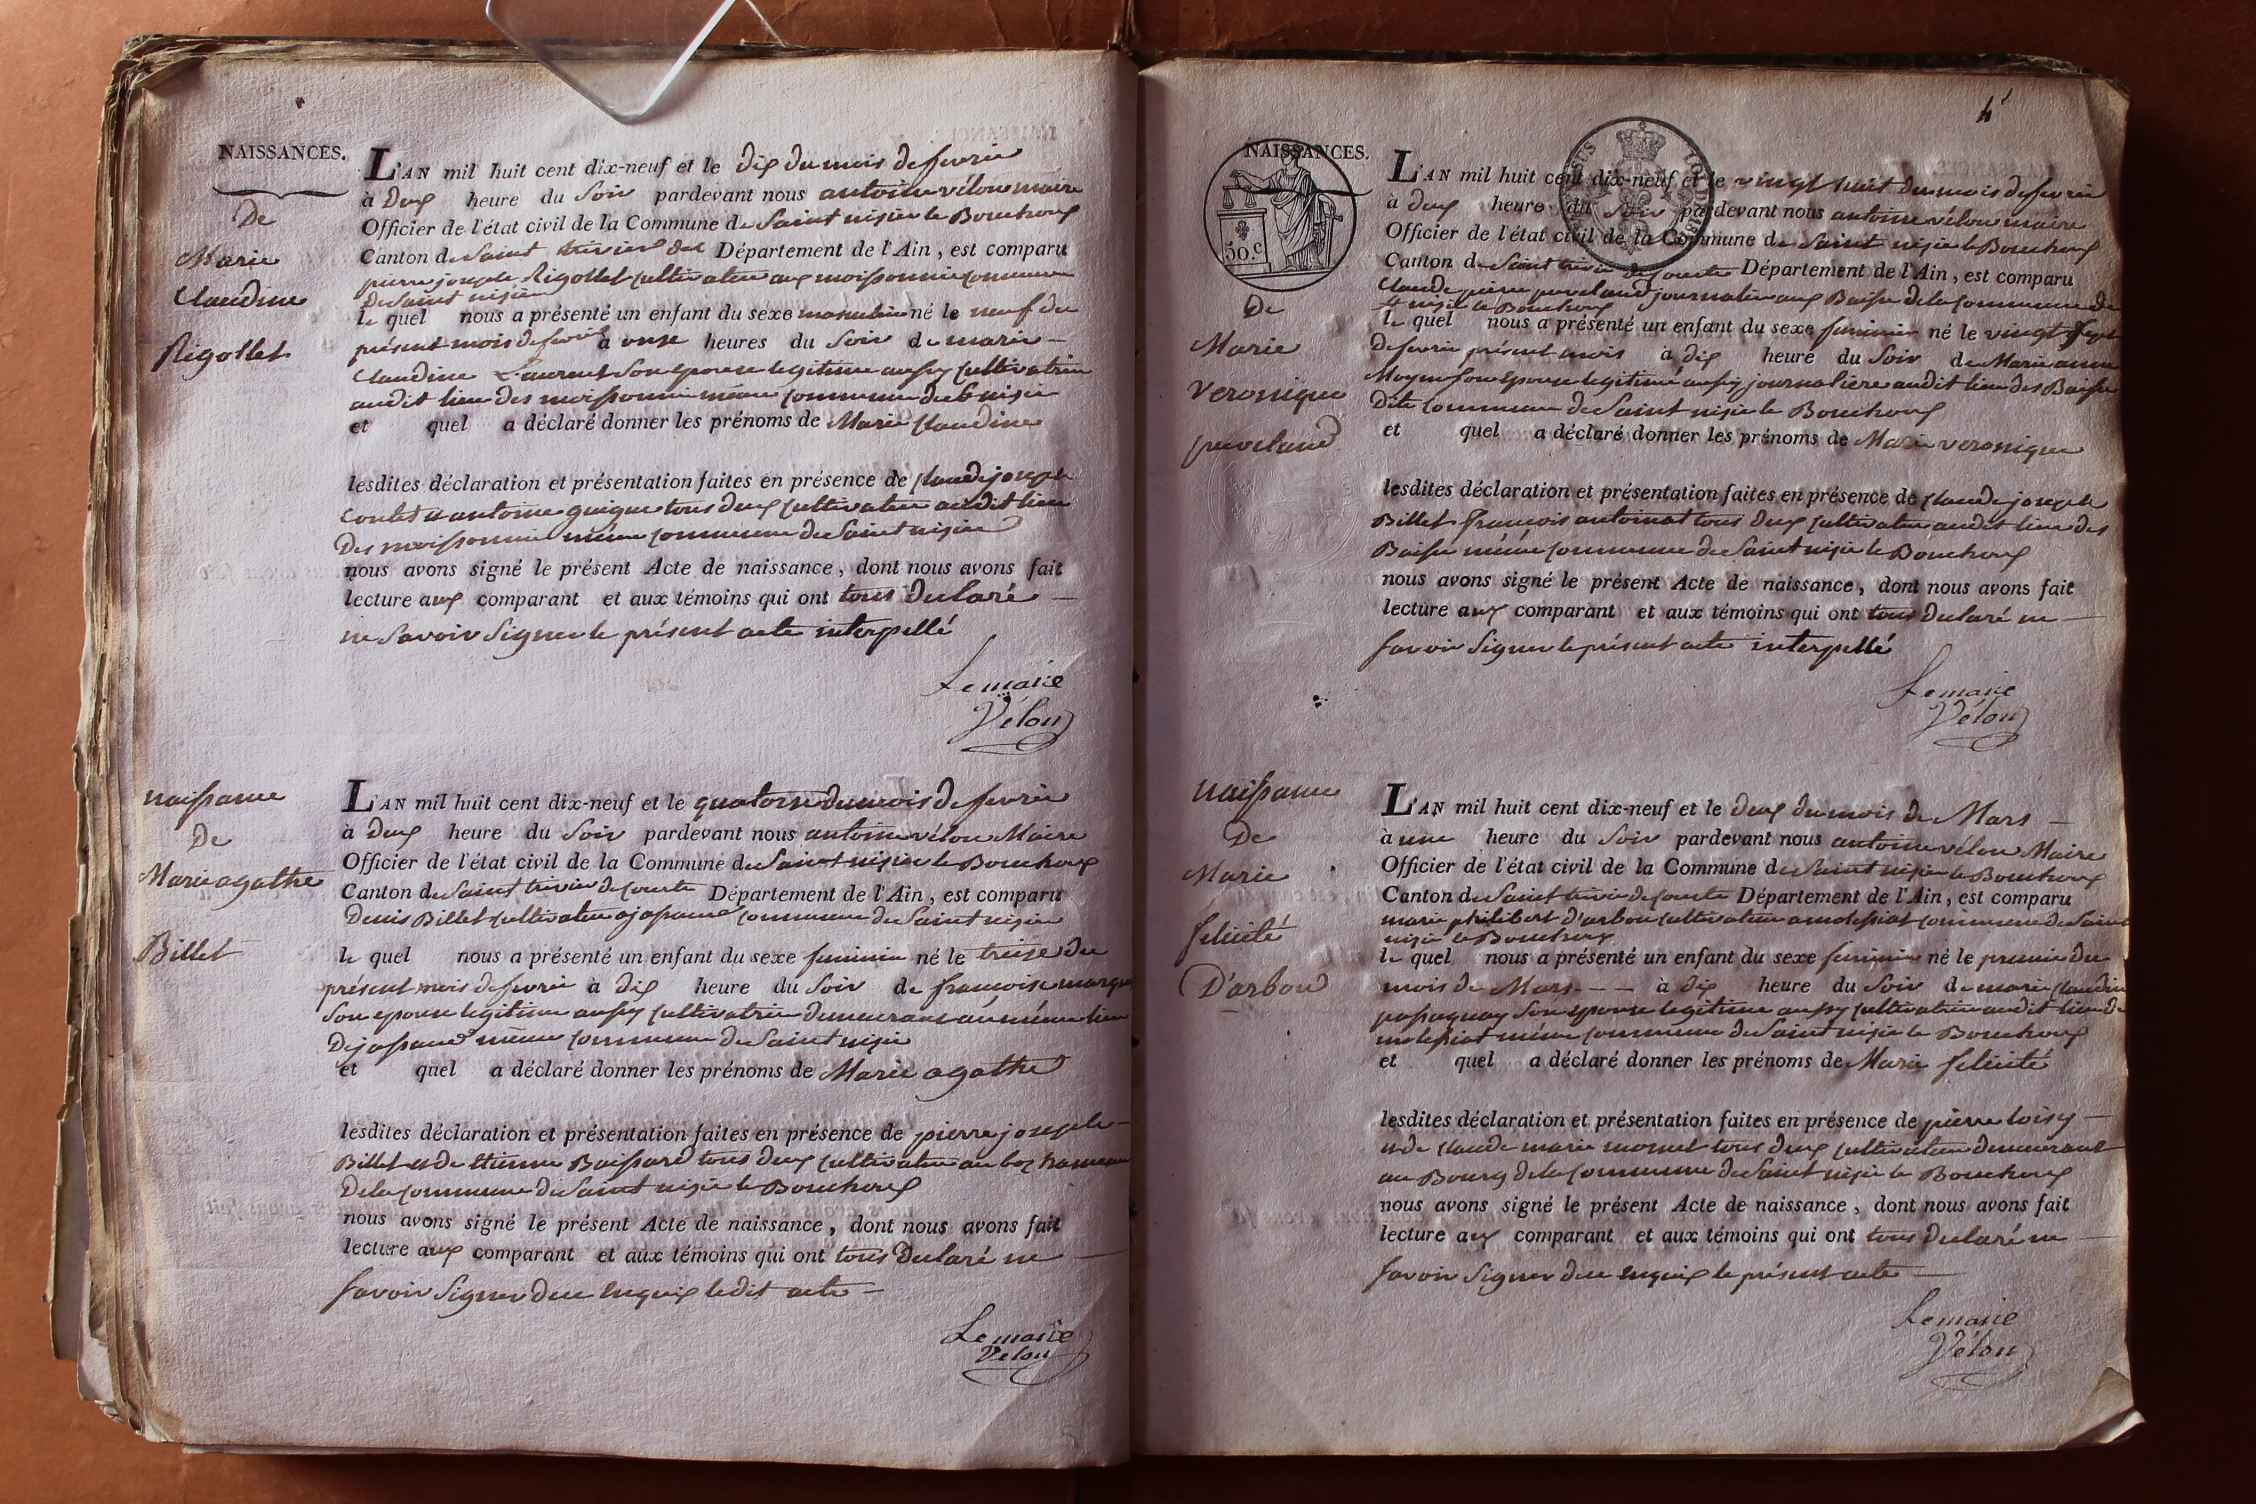 NAISSANCES.
De
Marie
Claudine
Rigollet
L'AN mil huit cent dix-neuf et le dix du mois de fevrier
à deux heure du Soir pardevant nous antoine vélon maire
Officier de l'état civil de la Commune de Saint nizier le Bouchoux
Canton de Saint trivier de Département de l'Ain, est comparu
pierre joseph Rigollet cultivateur aux moissonnier commune
De Saint nizier
le quel nous a présenté un enfant du sexe masculin né le neuf du
présent mois de fevrier à onze heures du Soir de marie
Claudine Laurent Son epouse legitime aussy cultivatrice
audit lieu des moissonnier même commune de St nizier
et quel a déclaré donner les prénoms de Marie Claudine
lesdites déclaration et présentation faites en présence de Claude joseph
antoine guigue tous deux cultivateur audit lieu
Des moissonnier même commune de Saint nizier
nous avons signé le présent Acte de naissance, dont nous avons fait
lecture aux comparant et aux témoins qui ont tous Declaré
ne Savoir Signer le présent acte interpellé
Le maire
Vélon
naissance
De
Marie agathe
Billet
L'AN mil huit cent dix-neuf et le quatorze du mois de fevrier
à deux heure du Soir pardevant nous antoine vélon Maire
Officier de l'état civil de la Commune de Saint nizier le Bouchoux
Canton de Saint trivier de Courte Département de l'Ain, est comparu
Denis Billet cultivateur a commune de Saint nizier
le quel nous a présenté un enfant du sexe feminin né le treize du
présent mois de fevrier à dix heure du Soir de françoise
Son epouse legitime aussy cultivatrice demeurant au même lieu
même commune de Saint nizier
et quel a déclaré donner les prénoms de Marie agathe
lesdites déclaration et présentation faites en présence de pierre joseph
Billet et de etienne Buissard tous deux cultivateur au hameau
De la commune de Saint nizier le Bouchoux
nous avons signé le présent Acte de naissance, dont nous avons fait
lecture aux comparant et aux témoins qui ont tous Declaré ne
Savoir Signer de ce enquis ledit acte
Le maire
Vélon
4
NAISSANCES.
50.c
De
Marie
veronique
L'AN mil huit cent dix-neuf et le vingt huit du mois de fevrier
à deux heure du Soir pardevant nous antoine vélon maire
Officier de l'état civil de la Commune de Saint nizier le Bouchoux
Canton de Saint trivier de Courte Département de l'Ain, est comparu
Claude pierre journalier aux de la commune de
St nizier le Bouchoux
le quel nous a présenté un enfant du sexe feminin né le vingt Sept
De fevrier présent mois à dix heure du Soir de Marie anne
Moyne Son epouse legitime aussy journaliere audit lieu des
Dite commune de Saint nizier le Bouchoux
et quel a déclaré donner les prénoms de Marie veronique
lesdites déclaration et présentation faites en présence de Claude joseph
Billet françois tous deux cultivateur audit lieu des
même commune de Saint nizier le Bouchoux
nous avons signé le présent Acte de naissance, dont nous avons fait
lecture aux comparant et aux témoins qui ont tous Declaré ne
Savoir Signer le présent acte interpellé
Le maire
Vélon
naissance
De
Marie
felicité
D'arbon
L'AN mil huit cent dix-neuf et le deux du mois de Mars
à une heure du Soir pardevant nous antoine vélon Maire
Officier de l'état civil de la Commune de Saint nizier le Bouchoux
Canton de Saint trivier de Courte Département de l'Ain, est comparu
marie philibert D'arbon cultivateur a commune de Saint
nizier le Bouchoux
le quel nous a présenté un enfant du sexe feminin né le premier du
mois de Mars à dix heure du Soir de marie Claudine
Son epouse legitime aussy cultivatrice audit lieu de
même commune de Saint nizier le Bouchoux
et quel a déclaré donner les prénoms de Marie felicité
lesdites déclaration et présentation faites en présence de pierre loisy
et de Claude marie monet tous deux cultivateur demeurant
au Bourg de la commune de Saint nizier le Bouchoux
nous avons signé le présent Acte de naissance, dont nous avons fait
lecture aux comparant et aux témoins qui ont tous Declaré ne
Savoir Signer de ce enquis le présent acte
Le maire
Vélon